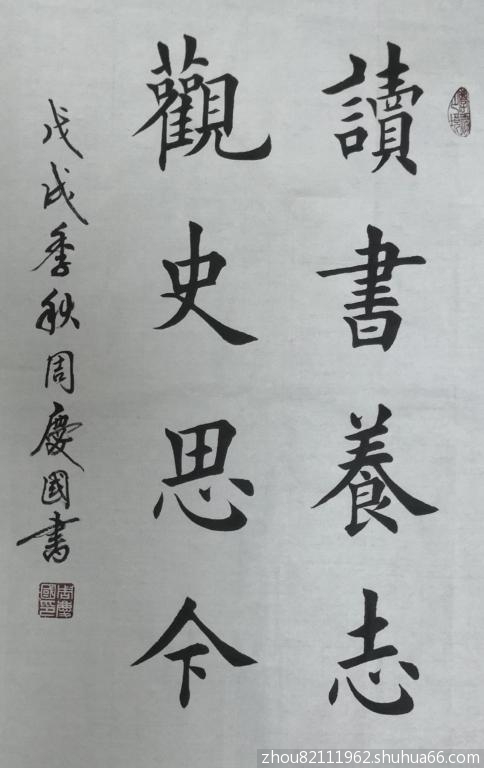 讀書養志
觀史思今
戊戌季秋周慶國书
周慶國印
zhou82111962.shuhua66.com